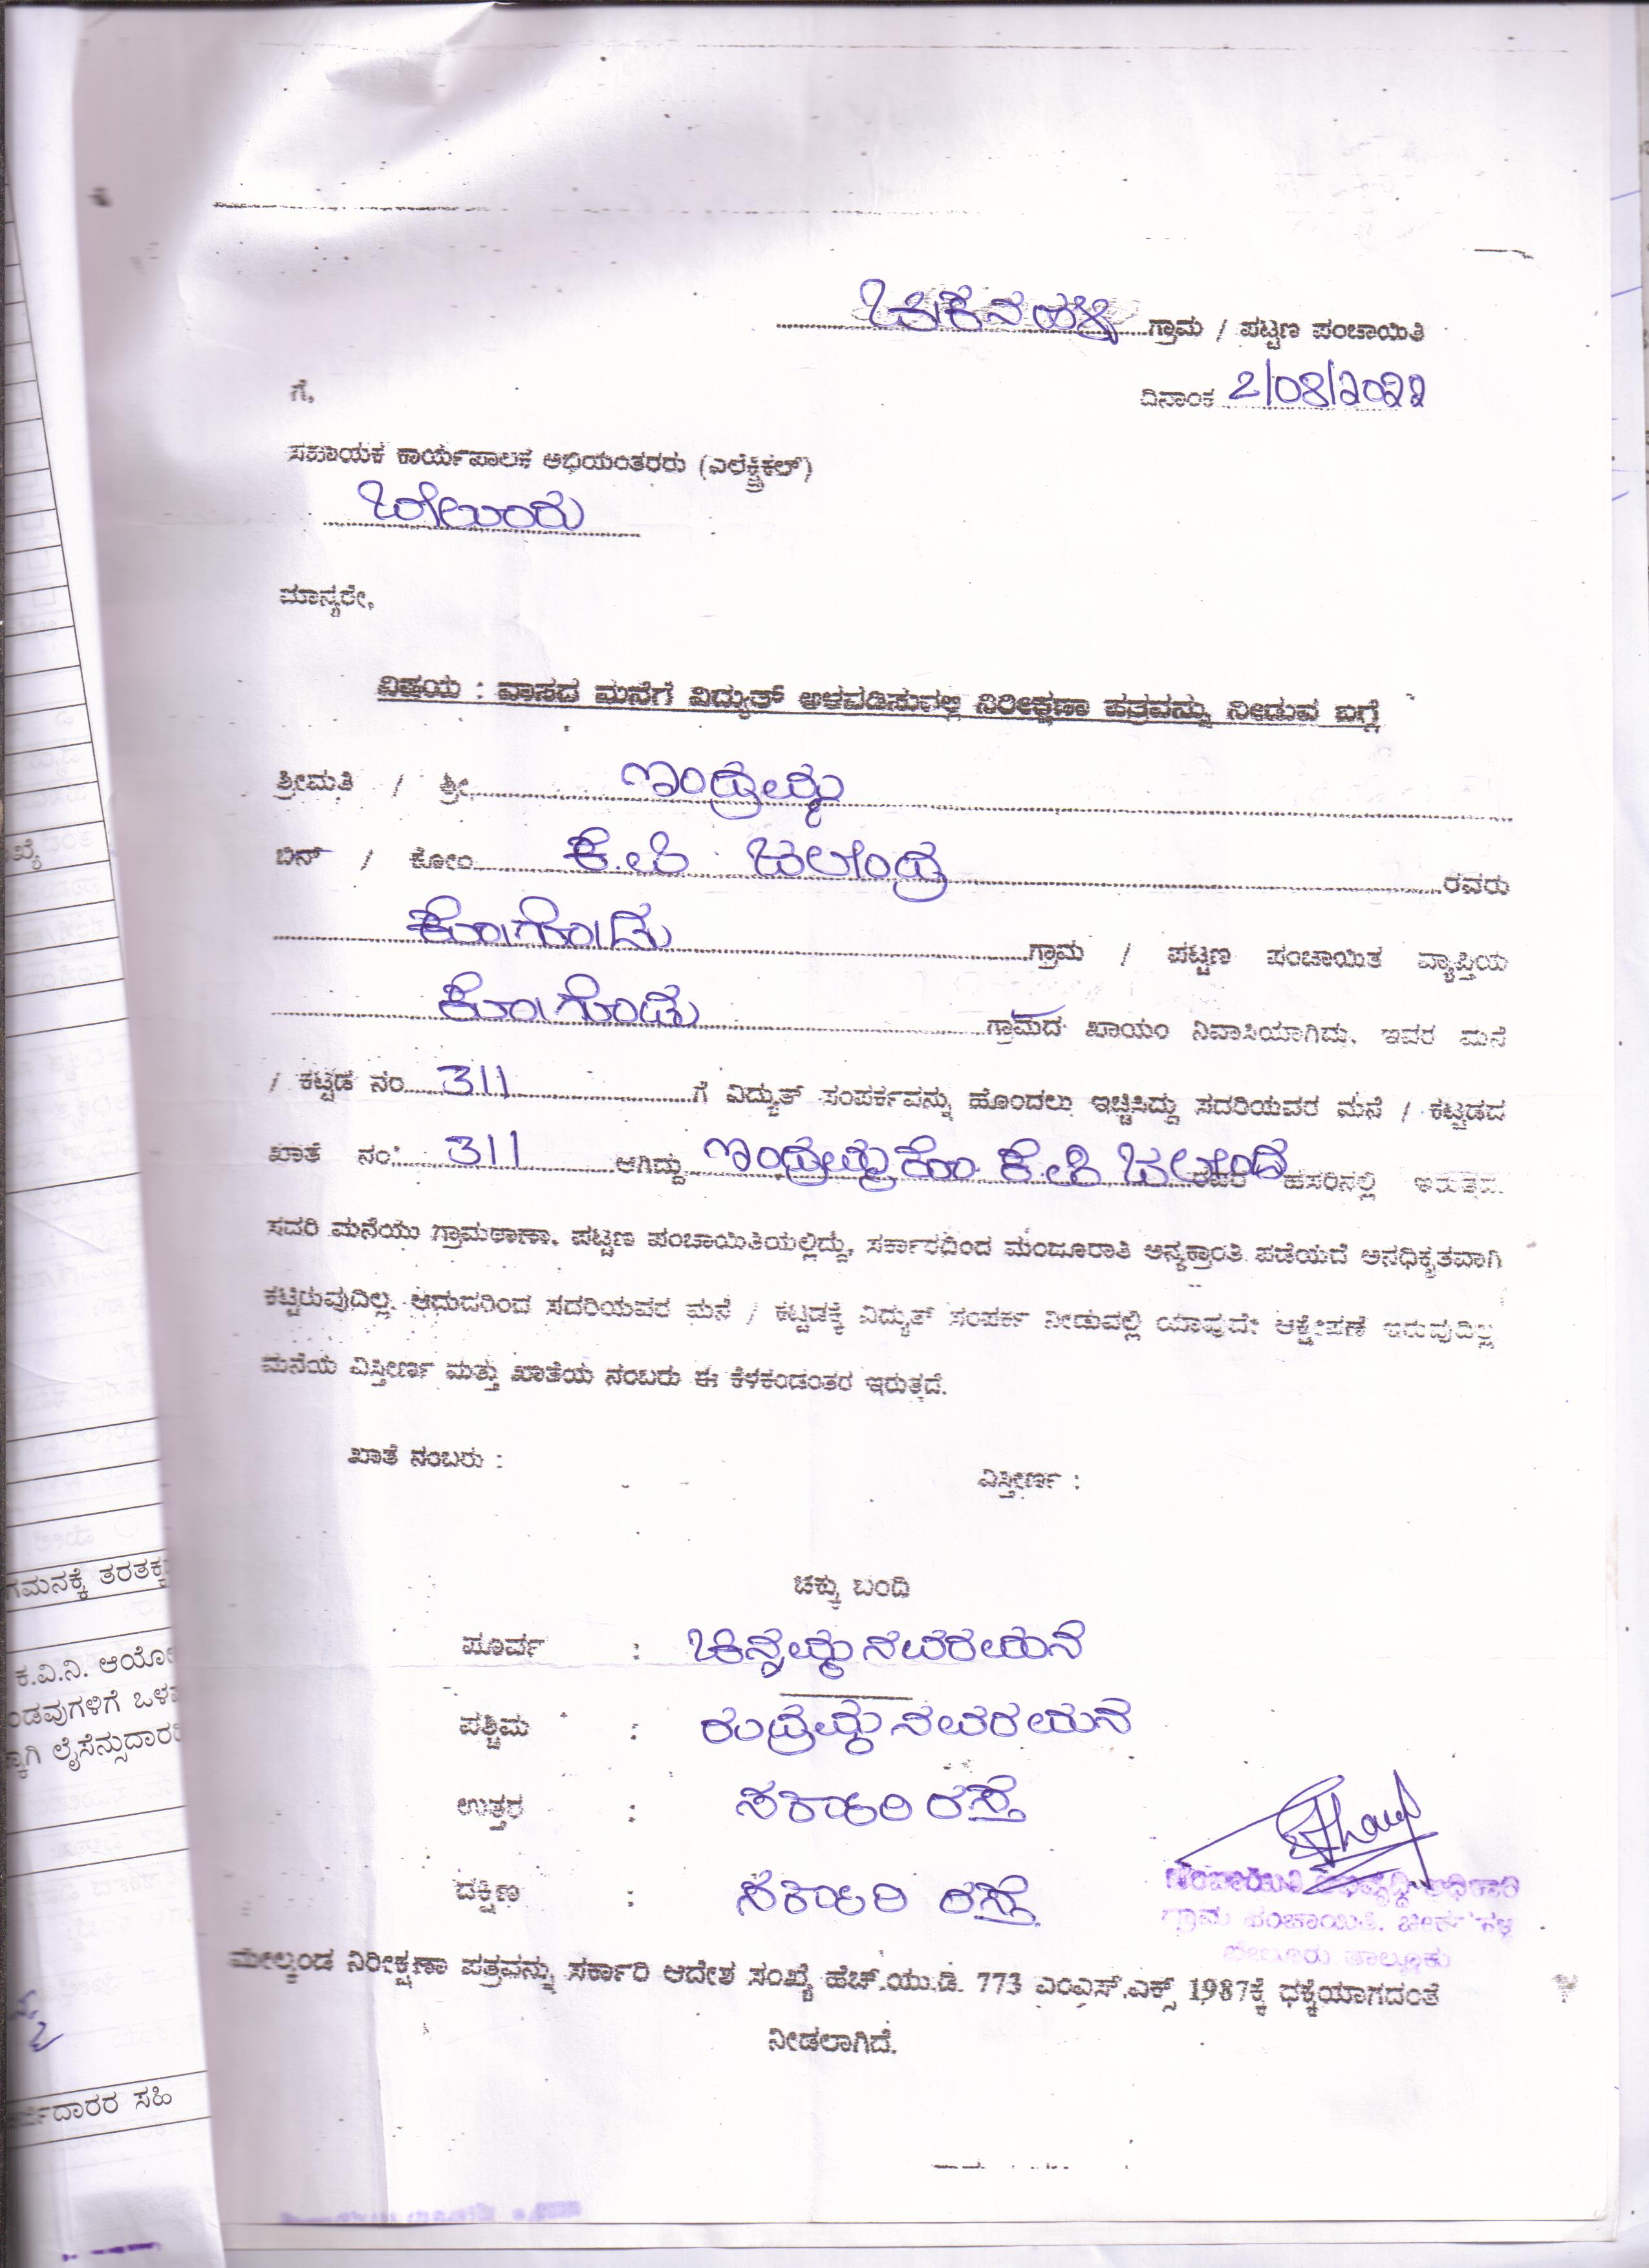 ಚೀಕನಹಳ್ಳಿ ಗ್ರಾಮ / ಪಟ್ಟಣ ಪಂಚಾಯಿತಿ
ಗೆ,
ದಿನಾಂಕ 2/08/2022
ಸಹಾಯಕ ಕಾರ್ಯಪಾಲಕ ಅಭಿಯಂತರರು (ಎಲೆಕ್ಟ್ರಿಕಲ್)
ಬೇಲೂರು
ಮಾನ್ಯರೇ,
ವಿಷಯ : ವಾಸದ ಮನೆಗೆ ವಿದ್ಯುತ್ ಅಳವಡಿಸುವಲ್ಲಿ ನಿರೀಕ್ಷಣಾ ಪತ್ರವನ್ನು ನೀಡುವ ಬಗ್ಗೆ
ಶ್ರೀಮತಿ / ಶ್ರೀ ಇಂದ್ರಮ್ಮ
ಬಿನ್ / ಕೋಂ ಕೆ.ಪಿ ಚಲೇಂದ್ರ ರವರು
ಕೋಗೋಡು ಗ್ರಾಮ / ಪಟ್ಟಣ ಪಂಚಾಯಿತ ವ್ಯಾಪ್ತಿಯ
ಕೋಗೋಡು ಗ್ರಾಮದ ಖಾಯಂ ನಿವಾಸಿಯಾಗಿದ್ದು, ಇವರ ಮನೆ
/ ಕಟ್ಟಡ ನಂ 311 ಗೆ ವಿದ್ಯುತ್ ಸಂಪರ್ಕವನ್ನು ಹೊಂದಲು ಇಚ್ಚಿಸಿದ್ದು ಸದರಿಯವರ ಮನೆ / ಕಟ್ಟಡದ
ಖಾತೆ ನಂ: 311 ಆಗಿದ್ದು ಇಂದ್ರಮ್ಮ ಕೋಂ ಕೆ.ಪಿ ಚಲೇಂದ್ರ ರವರ ಹೆಸರಿನಲ್ಲಿ ಇರುತ್ತದೆ.
ಸದರಿ ಮನೆಯು ಗ್ರಾಮಠಾಣಾ, ಪಟ್ಟಣ ಪಂಚಾಯಿತಿಯಲ್ಲಿದ್ದು, ಸರ್ಕಾರದಿಂದ ಮಂಜೂರಾತಿ ಅನ್ಯಕ್ರಾಂತಿ ಪಡೆಯದೆ ಅನಧಿಕೃತವಾಗಿ
ಕಟ್ಟಿರುವುದಿಲ್ಲ. ಆದುದರಿಂದ ಸದರಿಯವರ ಮನೆ / ಕಟ್ಟಡಕ್ಕೆ ವಿದ್ಯುತ್ ಸಂಪರ್ಕ ನೀಡುವಲ್ಲಿ ಯಾವುದೇ ಆಕ್ಷೇಪಣೆ ಇರುವುದಿಲ್ಲ
ಮನೆಯ ವಿಸ್ತೀರ್ಣ ಮತ್ತು ಖಾತೆಯ ನಂಬರು ಈ ಕೆಳಕಂಡಂತರ ಇರುತ್ತದೆ.
ಖಾತೆ ನಂಬರು :
ವಿಸ್ತೀರ್ಣ :
ಚಕ್ಕು ಬಂದಿ
ಪೂರ್ವ : ಚಿನ್ನಮ್ಮನವರ ಮನೆ
ಪಶ್ಚಿಮ : ರುದ್ರಮ್ಮನವರ ಮನೆ
ಉತ್ತರ : ಸರ್ಕಾರಿ ರಸ್ತೆ
ದಕ್ಷಿಣ : ಸರ್ಕಾರಿ ರಸ್ತೆ
ಪಂಚಾಯಿತಿ ಅಭಿವೃದ್ಧಿ ಅಧಿಕಾರಿ
ಗ್ರಾಮ ಪಂಚಾಯಿತಿ,
ಬೇಲೂರು ತಾಲ್ಲೂಕು
ಮೇಲ್ಕಂಡ ನಿರೀಕ್ಷಣಾ ಪತ್ರವನ್ನು ಸರ್ಕಾರಿ ಆದೇಶ ಸಂಖ್ಯೆ ಹೆಚ್.ಯು.ಡಿ. 773 ಎಂಎಸ್.ಎಕ್ಸ್ 1987ಕ್ಕೆ ಧಕ್ಕೆಯಾಗದಂತೆ
ನೀಡಲಾಗಿದೆ.
ಗಮನಕ್ಕೆ
ಕ.ವಿ.ನಿ.